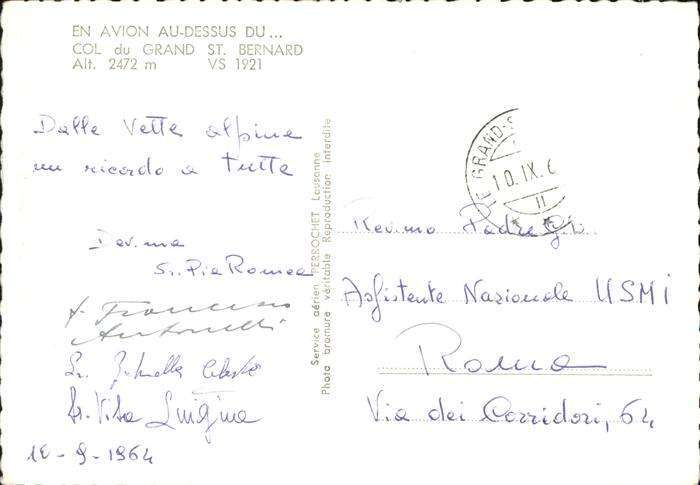 EN AVION AU-DESSUS DU...
COL du GRAND ST. BERNARD
Alt. 2472 m VS 1921
Dalle Vette alpine
un ricordo a tutte
Dev.ma
Sr. Pia Romea
Francesco
Antonelli
Sr.
Sr. Vita Luigina
10-9-1964
Service aérien PERROCHET Lausanne
Photo bromure véritable Reproduction interdite
GRAND-S
10.IX.6
11
Rev.mo Padre
Assistente Nazionale USMI
Roma
Via dei Corridori, 64